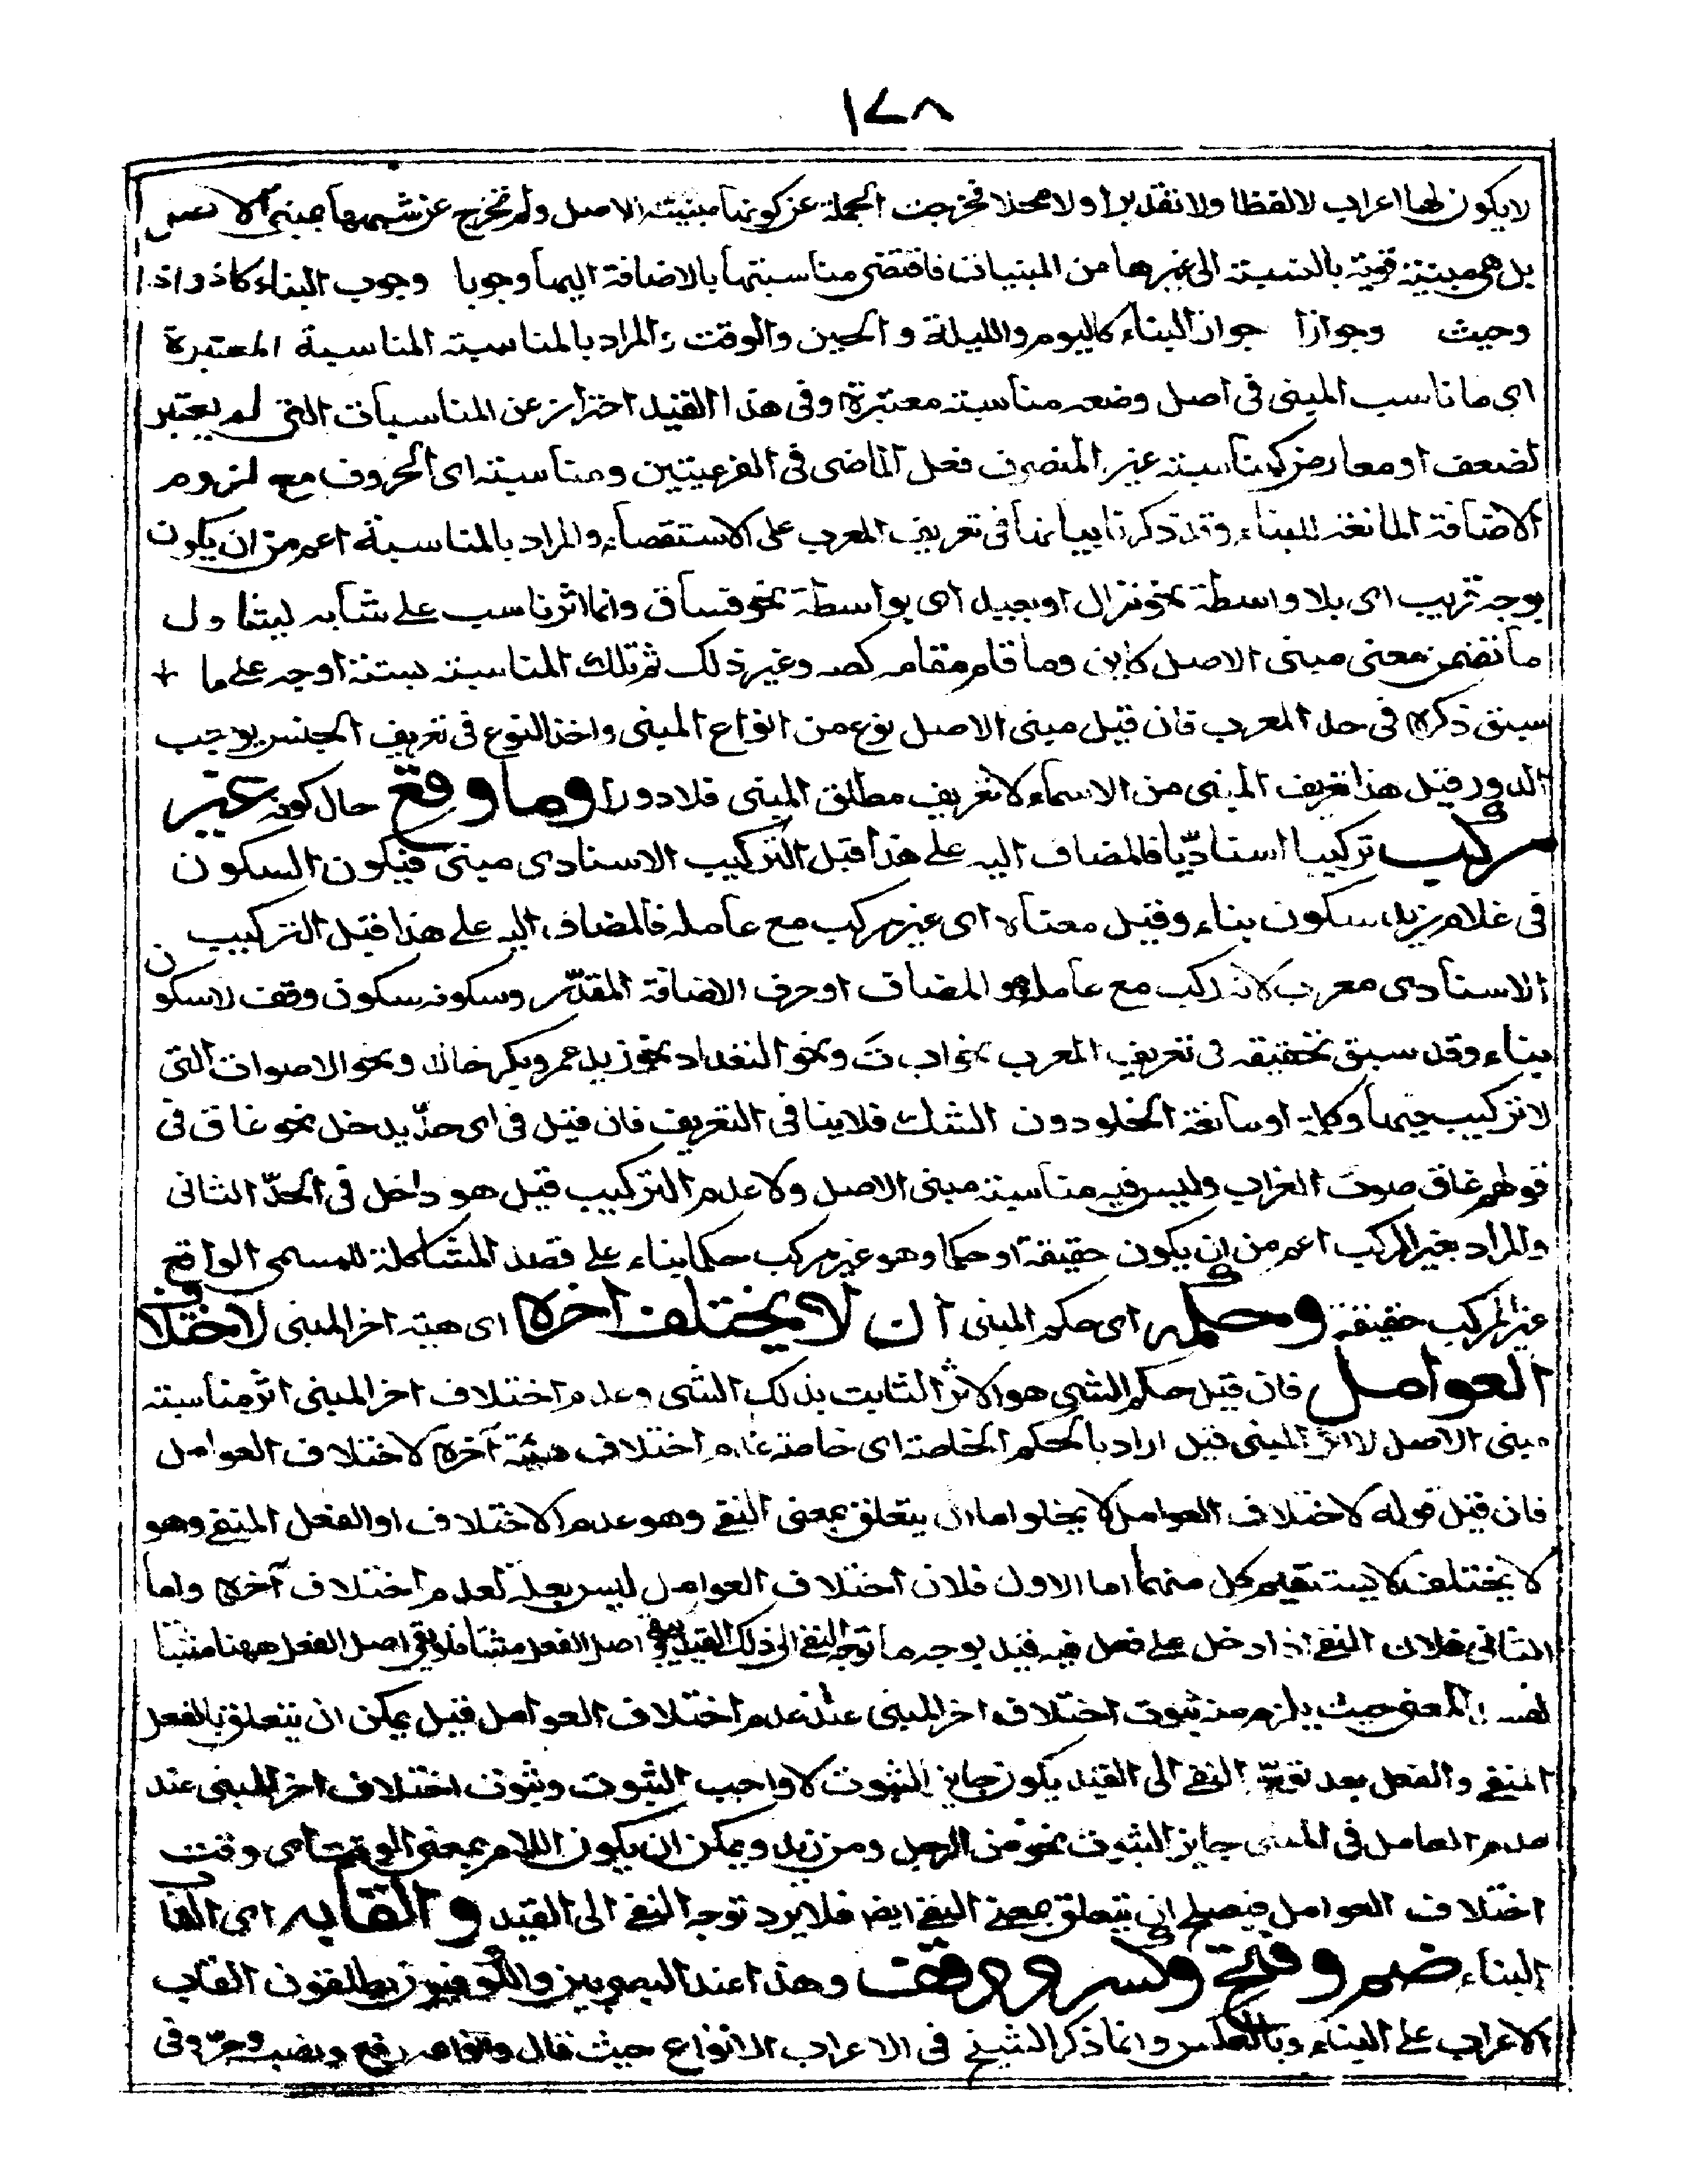 ١٧٨
لا يكون لها اعراب لا لفظا ولا تقديرا ولا محلا فخرجت الجملة عن كونها مبنية الاصل ولم تخرج عن شبهها بمبنى الاصل
بل هى مبنية قوية بالنسبة الى غيرها من المبنيات فاقتضى مناسبتها بالاضافة اليها وجوبا وجوب البناء كاذ واذا
وحيث وجوازا جواز البناء كاليوم والليلة والحين والوقت والمراد بالمناسبة المناسبة المعتبرة
اى ما ناسب المبنى فى اصل وضعه مناسبة معتبرة وفى هذا القيد احتراز عن المناسبات التى لم يعتبر
لضعف او معارض كمناسبة غير المنصرف فعل الماضى فى الفرعيتين ومناسبة اى الحروف مع لزوم
الاضافة المانعة للبناء وقد ذكرنا بيانها فى تعريف المعرب على الاستقصاء والمراد بالمناسبة اعم من ان يكون
بوجه قريب اى بلا واسطة نحو نزال او بعيد اى بواسطة نحو فساق وانما اثر ناسب على شابه ليتناول
ما تضمن معنى مبنى الاصل كاين وما قام مقامه كصه وغير ذلك ثم تلك المناسبة بستة اوجه على ما
سبق ذكره فى حد المعرب فان قيل مبنى الاصل نوع من انواع المبنى واخذ النوع فى تعريف الجنس يوجب
الدور قيل هذا تعريف المبنى من الاسماء لا تعريف مطلق المبنى فلا دور او ما وقع حال كونه غير
مركب تركيبا اسناديّا فالمضاف اليه على هذا قبل التركيب الاسنادى مبنى فيكون السكون
فى غلام زيد سكون بناء وقيل معناه اى غير مركب مع عامله فالمضاف اليه على هذا قبل التركيب
الاسنادى معرب لانه ركب مع عامله وهو المضاف او حرف الاضافة المقدّر وسكونه سكون وقف لا سكون
بناء وقد سبق تحقيقه فى تعريف المعرب نحو ا ب ت ونحو التعداد نحو زيد عمرو بكر خالد ونحو الاصوات التى
لا تركيب فيها وكلمة او مانعة الخلو دون الشك فلا ينافى التعريف فان قيل فى اى حدّ يدخل نحو غاق فى
قولهم غاق صوت الغراب وليس فيه مناسبة مبنى الاصل ولا عدم التركيب قيل هو داخل فى الحدّ الثانى
والمراد بغير المركب اعم من ان يكون حقيقة او حكما وهو غير مركب حكما بناء على قصد المشاكلة للمسمى الواقع
غير المركب حقيقة وحكمه اى حكم المبنى ان لا يختلف اخره اى هيئة اخر المبنى لاختلاف
العوامل فان قيل حكم الشى هو الاثر الثابت بذلك الشى وعدم اختلاف اخر المبنى اثر مناسبة
مبنى الاصل لا اثر المبنى قيل اراد بالحكم الخاصة اى خاصة عدم اختلاف هيئة آخره لاختلاف العوامل
فان قيل قوله لاختلاف العوامل لا يخلو اما ان يتعلق بمعنى النفى وهو عدم الاختلاف او الفعل المنفى وهو
لا يختلف لا يستقيم كل منهما اما الاول فلان اختلاف العوامل ليس بعلة لعدم اختلاف آخره واما
الثانى فلان النفى اذا دخل على فعل فيه قيد يوجه ما توجه النفى الى ذلك القيد يبقى اصل الفعل مثبتا فلو بقى اصل الفعل ههنا مثبتا
لفسد المعنى حيث يلزم منه ثبوت اختلاف اخر المبنى عند عدم اختلاف العوامل قيل يمكن ان يتعلق بالفعل
المنفى والفعل بعد توجّه النفى الى القيد يكون جايز الثبوت لا واجب الثبوت وثبوت اختلاف اخر المبنى عند
عدم العامل فى المبنى جايز الثبوت نحو من الرجل ومن زيد ويمكن ان يكون اللام بمعنى الوقت اى وقت
اختلاف العوامل فيصلح ان يتعلق بمعنى النفى ايضا فلا يرد توجه النفى الى القيد والقابه اى القاب
البناء ضم وفتح وكسر ووقف وهذا عند البصريين والكوفيون يطلقون القاب
الاعراب على البناء وبالعكس وانما ذكر الشيخ فى الاعراب الانواع حيث قال وانواعه رفع ونصب وجرّ وفى